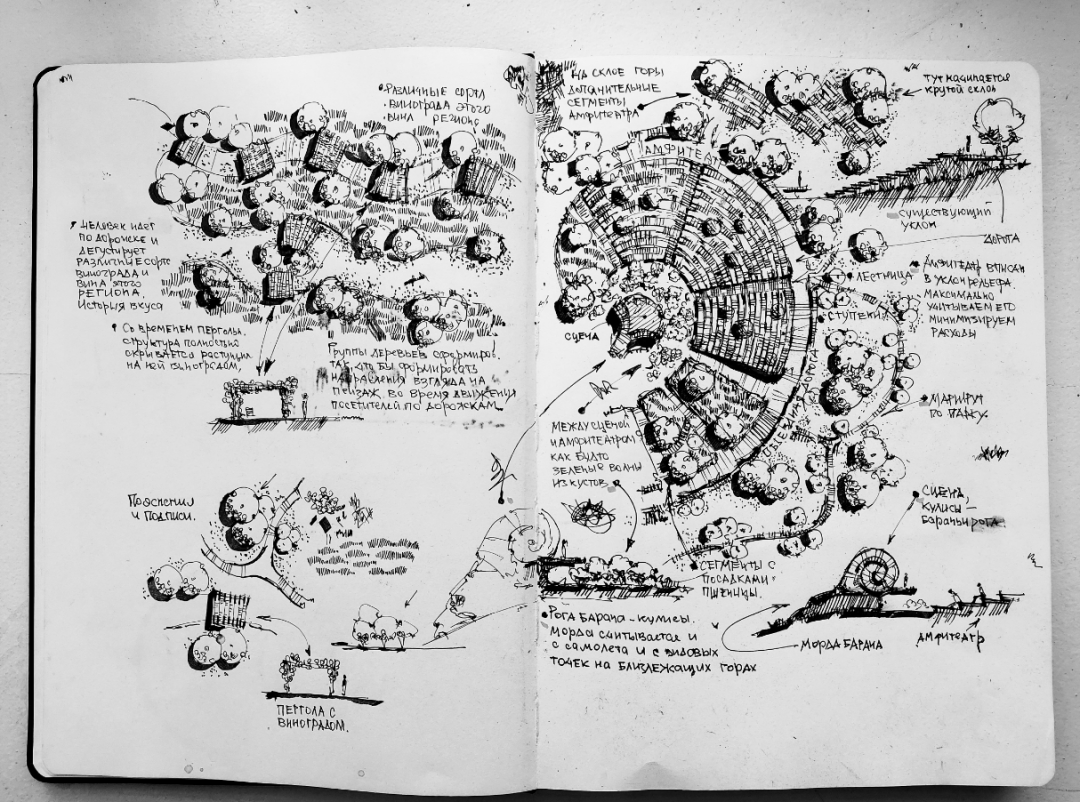 Различные сорта
винограда этого
вина региона
Человек идет
по дорожке и
дегустирует
различные сорта
винограда и
вина этого
региона.
История вкуса
Со временем пергола.
структура полностью
скрывается растущим
на ней виноградом,
Группы деревьев сформиров.
так что бы формировать
направления взгляда на
пейзаж. во время движения
посетителей по дорожкам.
Пояснения
и подписи.
пергола с
виноградом.
На склое горы
дополнительные
сегменты
амфитеатра
тут начинается
крутой склон
амфитеатр
существующий
уклон
дорога
лестница
ступени
Амфитеатр вписан
в уклон рельефа.
максимально
учитываем его
минимизируем
расходы
сцена
маршрут
по парку.
Между сценой
и амфитеатром
как будто
зеленые волны
из кустов
сцена,
кулисы –
бараньи рога
сегменты с
посадками
пшеницы.
Рога барана – кулисы.
Морда считывается и
с самолета и с видовых
точек на близлежащих горах
морда барана
амфитеатр